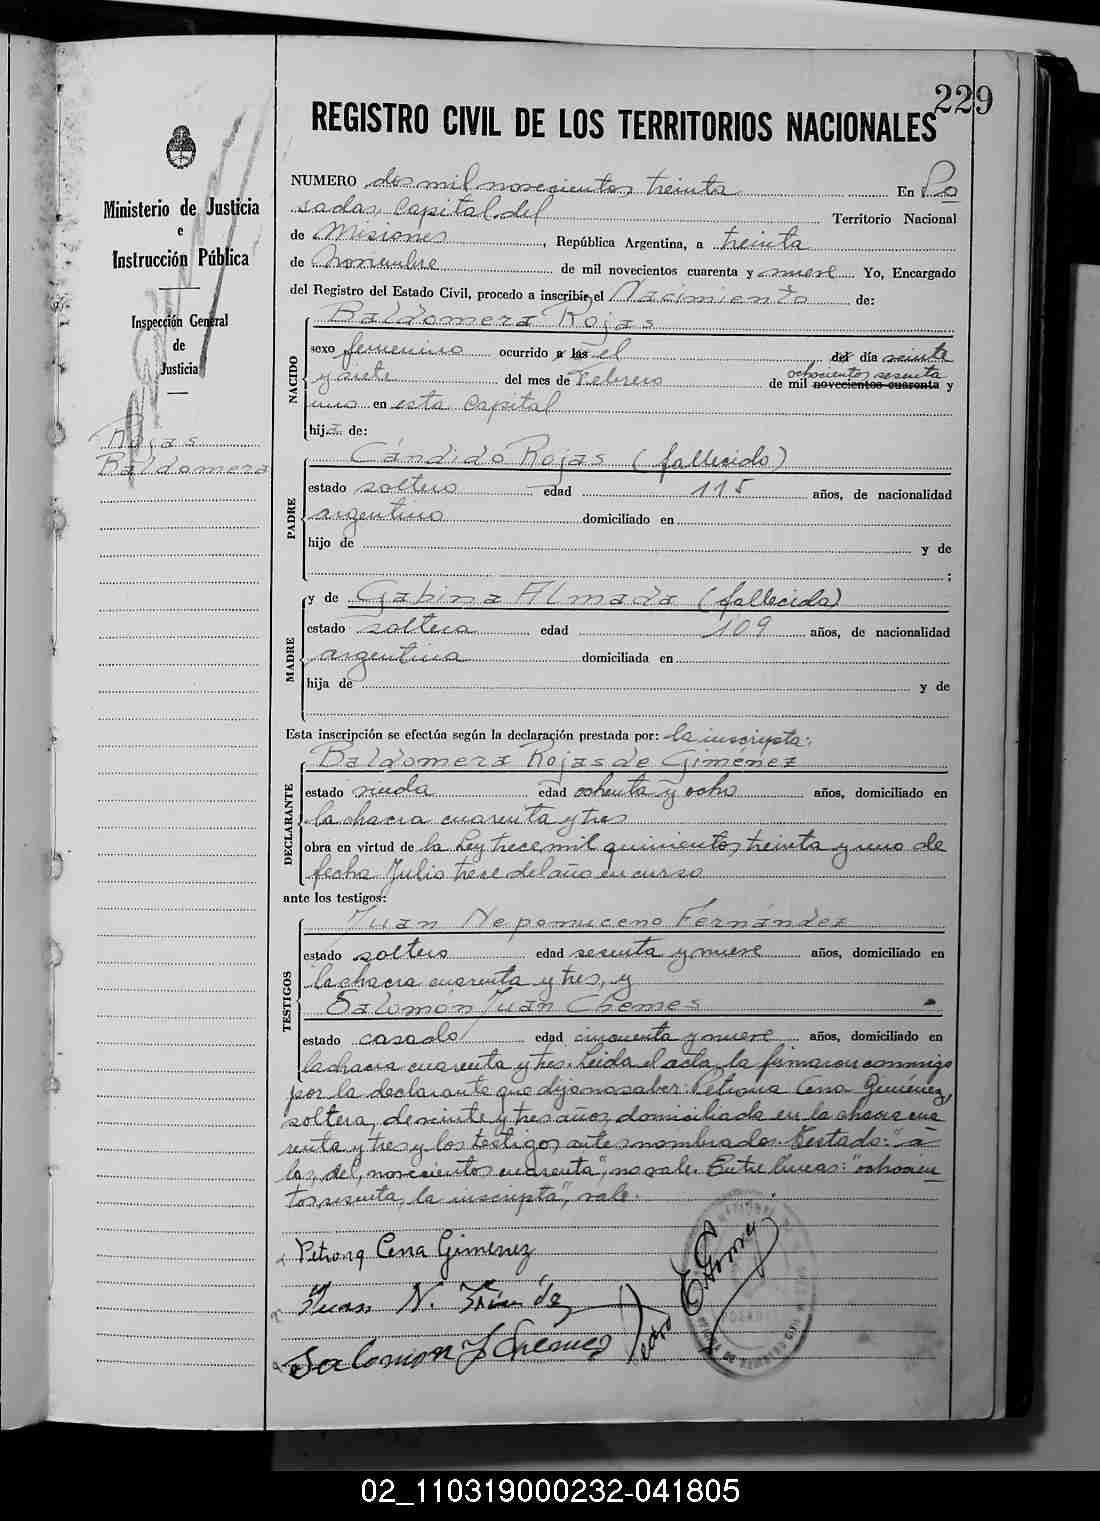 229
REGISTRO CIVIL DE LOS TERRITORIOS NACIONALES
Ministerio de Justicia
e
Instrucción Pública
Inspección General
de
Justicia
Rojas
Baldomera
NUMERO dos mil novecientos treinta En Po
sadas, Capital del Territorio Nacional
de Misiones, República Argentina, a treinta
de Noviembre de mil novecientos cuarenta y nueve Yo, Encargado
del Registro del Estado Civil, procedo a inscribir el Nacimiento de:
NACIDO
Baldomera Rojas
sexo femenino ocurrido a las el del día veinte
ochocientos sesenta
y siete del mes de Febrero de mil novecientos cuarenta y
uno en esta Capital
hija de:
PADRE
Cándido Rojas (fallecido)
estado soltero edad 115 años, de nacionalidad
argentino domiciliado en
hijo de y de
;
MADRE
y de Gabina Almada (fallecida)
estado soltera edad 109 años, de nacionalidad
argentina domiciliada en
hija de y de
Esta inscripción se efectúa según la declaración prestada por: la inscripta:
DECLARANTE
Baldomera Rojas de Giménez
estado viuda edad ochenta y ocho años, domiciliado en
la chacra cuarenta y tres
obra en virtud de la Ley trece mil quinientos treinta y uno de
fecha Julio trece del año en curso
ante los testigos:
TESTIGOS
Juan Nepomuceno Fernández
estado soltero edad sesenta y nueve años, domiciliado en
la chacra cuarenta y tres, y
Salomon Juan Chemes
estado casado edad cincuenta y nueve años, domiciliado en
la chacra cuarenta y tres. Leida el acta, la firmaron conmigo
por la declarante que dijo no saber: Petrona Cena Giménez,
soltera, de veinte y tres años, domiciliada en la chacra cua
renta y tres y los testigos antes nombrados. Testado: "a
las, del, novecientos cuarenta", no vale. Entre lineas: "ochocien
tos sesenta, la inscripta", vale.
Petrona Cena Gimenez
Juan N.
Salomon J Chemes
02_110319000232-041805